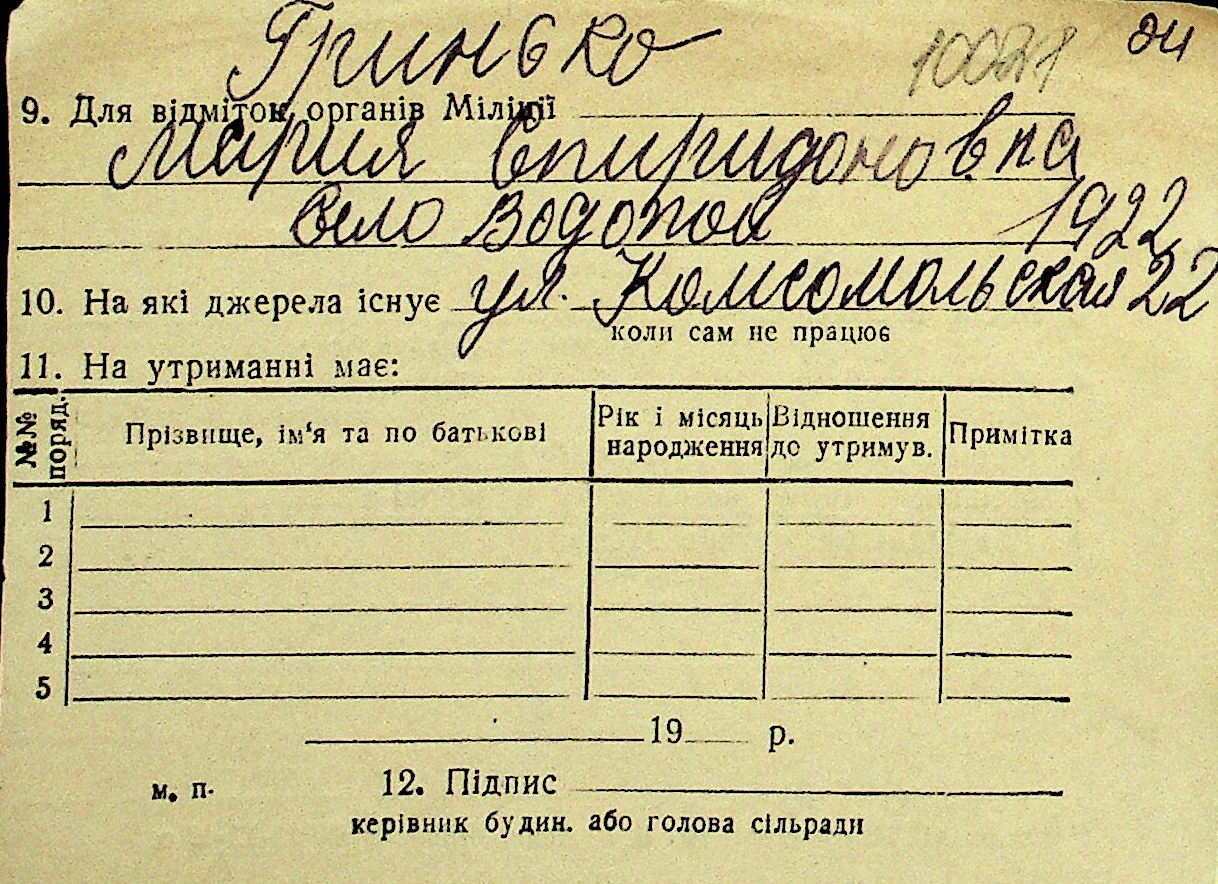 Гринько 10021 ОИ
9. Для відміток органів Міліції
Мария Спиридоновна
село Водопой 1922
10. На які джерела існує ул. Комсомольская 22
коли сам не працює
11. На утриманні має:
№№ поряд. Прізвище, ім'я та по батькові Рік і місяць народження Відношення до утримув. Примітка
1
2
3
4
5
19 р.
м. п. 12. Підпис
керівник будин. або голова сільради